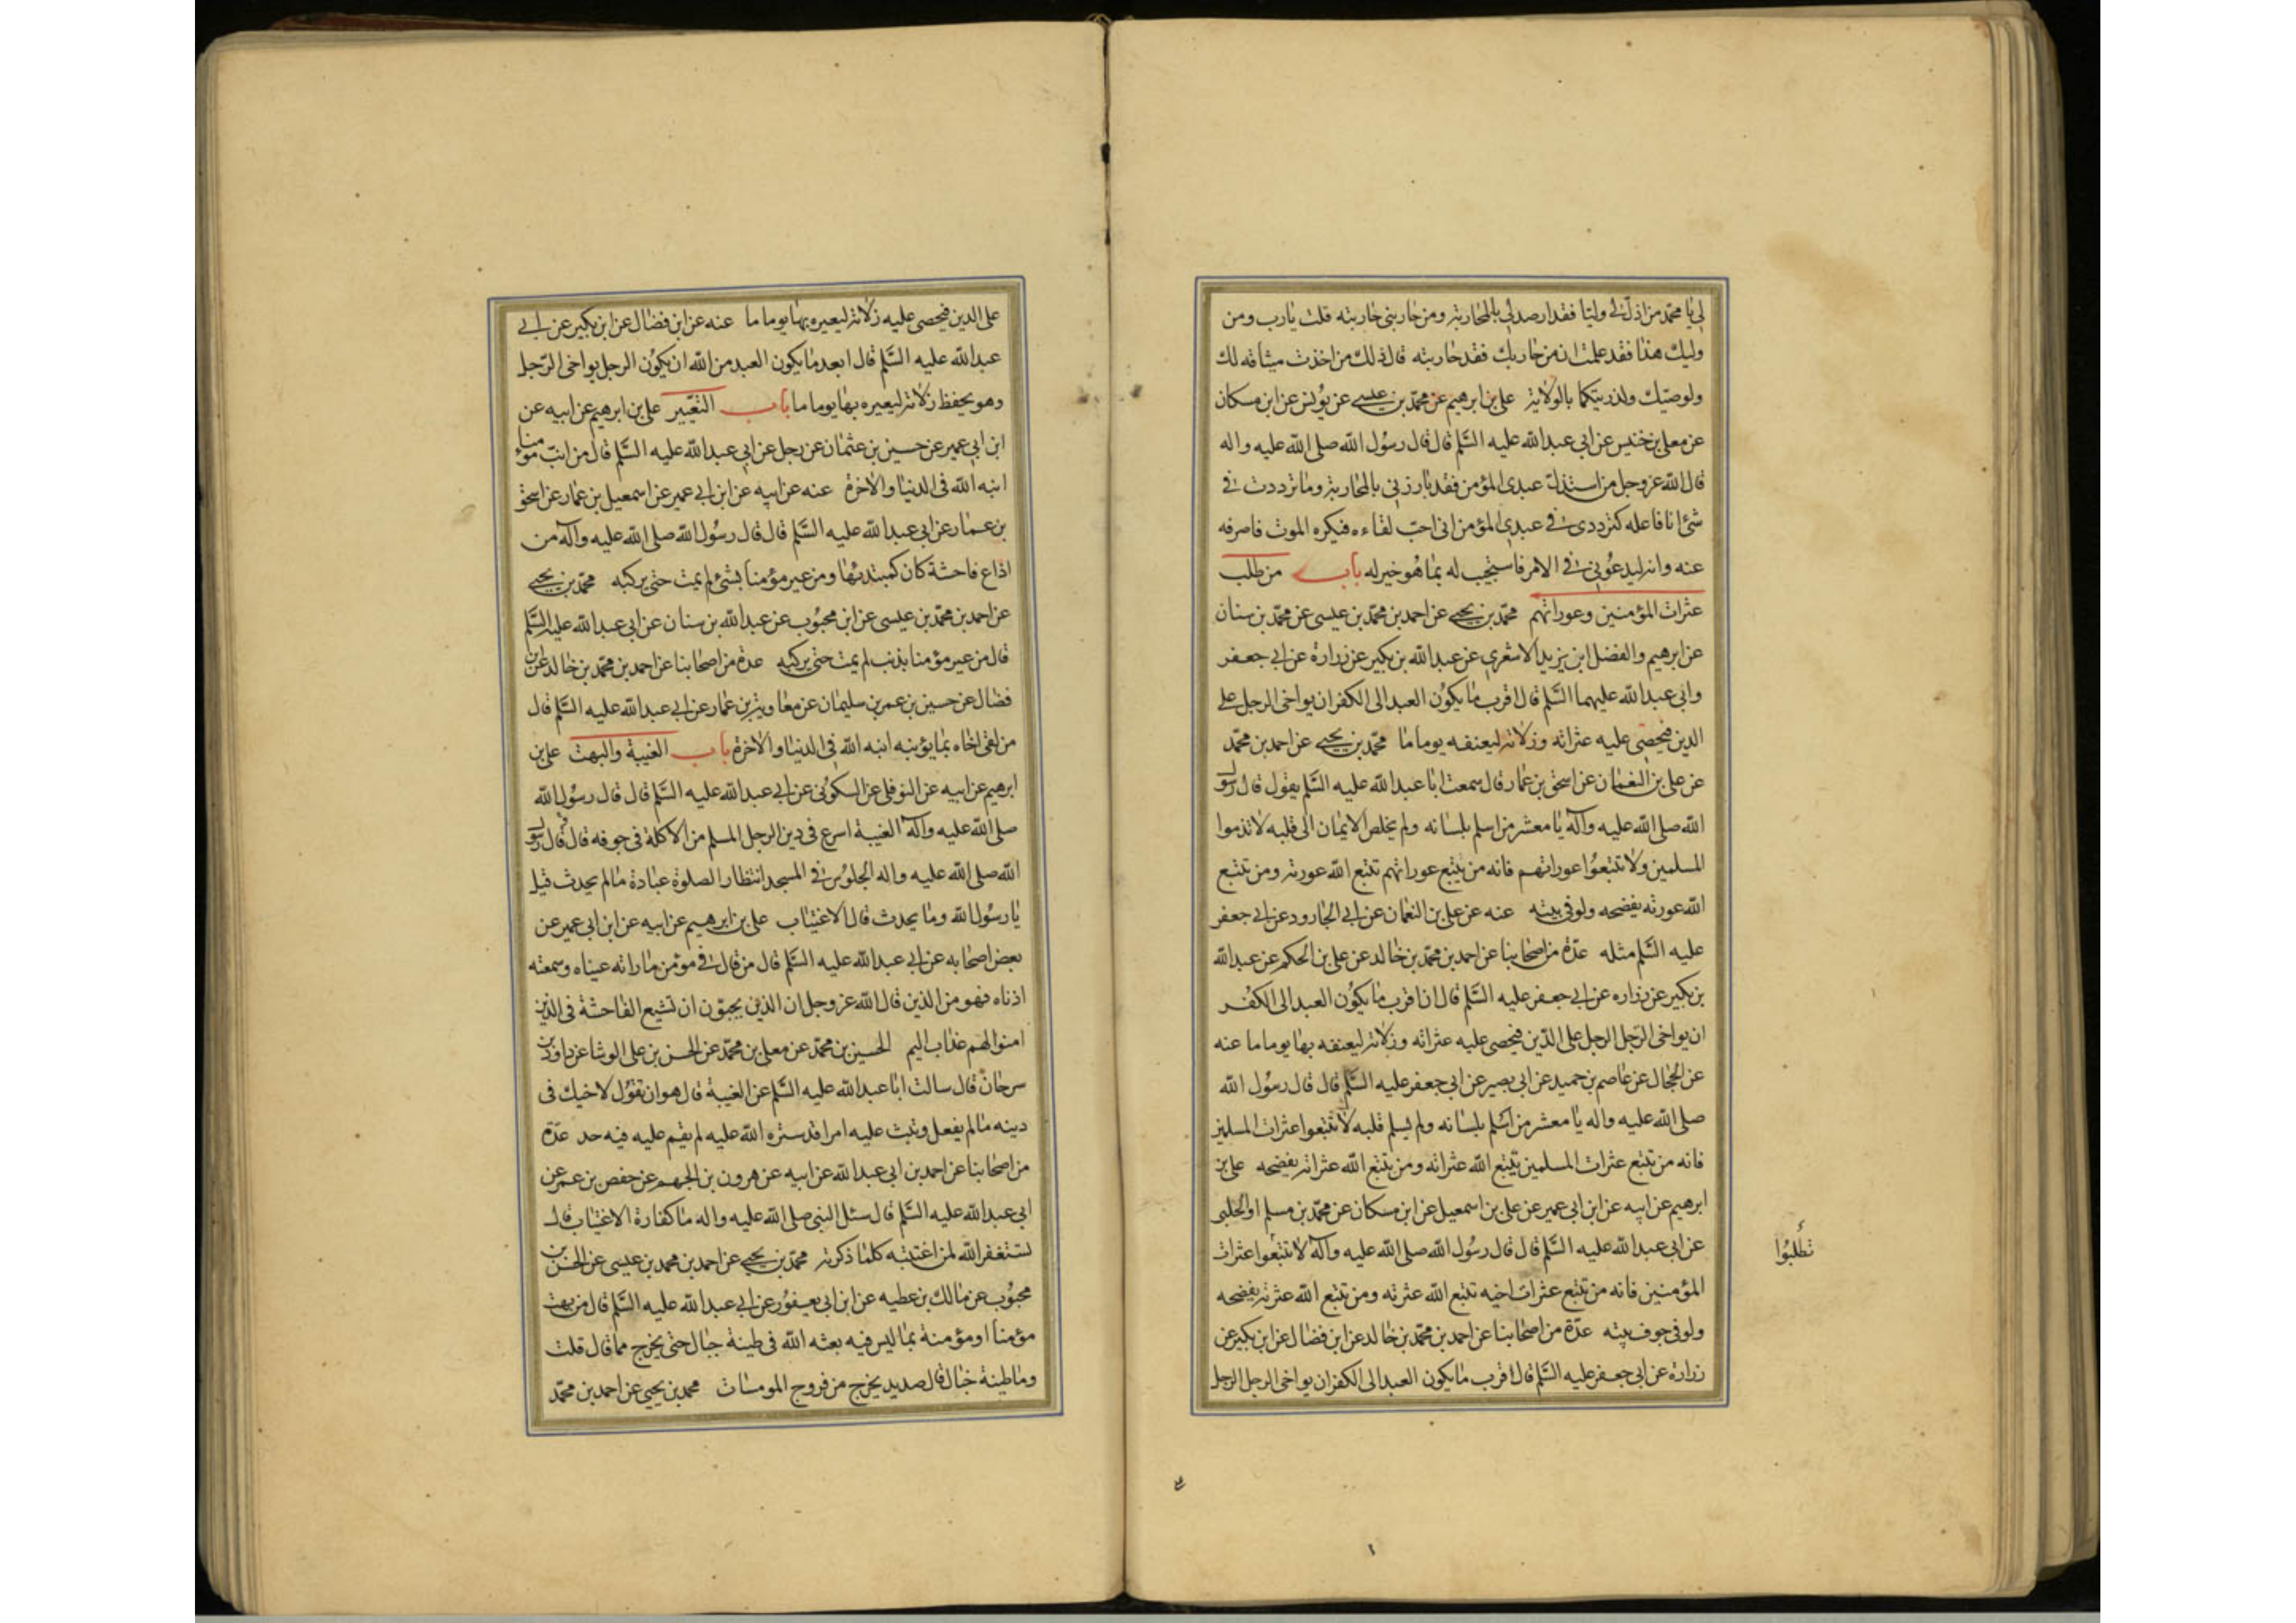 لي يا محمد من اذل لي وليا فقد ارصد لي بالمحاربة ومن حاربني حاربته قلت يا رب ومن
وليك هذا فقد علمت ان من حاربك فقد حاربته قال ذلك من اخذت ميثاقه لك
ولوصيك ولذريتكما بالولاية علي بن ابرهيم عن محمد بن عيسى عن يونس عن ابن مسكان
عن معلى بن خنيس عن ابي عبدالله عليه السَّلم قال قال رسول الله صلى الله عليه واله
قال الله عز وجل من استذل عبدي المؤمن فقد بارزني بالمحاربة وما ترددت في
شئ انا فاعله كترددي في عبدي المؤمن اني احب لقاءه فيكره الموت فاصرفه
عنه وانه ليدعوني في الامر فاستجيب له بما هو خير له باب من طلب
عثرات المؤمنين وعوراتهم محمد بن يحيى عن احمد بن محمد بن عيسى عن محمد بن سنان
عن ابرهيم والفضل ابن يزيد الاشعري عن عبدالله بن بكير عن زرارة عن ابي جعفر
وابي عبدالله عليهما السَّلم قال اقرب ما يكون العبد الى الكفر ان يواخي الرجل على
الدين فيحصي عليه عثراته وزلاته ليعنفه يوما ما محمد بن يحيى عن احمد بن محمد
عن علي بن النعمان عن اسحق بن عمار قال سمعت ابا عبدالله عليه السَّلم يقول قال رسول
الله صلى الله عليه وآله يا معشر من اسلم بلسانه ولم يخلص الايمان الى قلبه لا تذموا
المسلمين ولا تتبعوا عوراتهم فانه من يتبع عوراتهم تتبع الله عورته ومن تتبع
الله عورته يفضحه ولو في بيته عنه عن علي بن النعمان عن ابي الجارود عن ابي جعفر
عليه السَّلم مثله عدة من اصحابنا عن احمد بن محمد بن خالد عن علي بن الحكم عن عبدالله
بن بكير عن زراره عن ابي جعفر عليه السَّلم قال ان اقرب ما يكون العبد الى الكفر
ان يواخي الرجل الرجل على الدين فيحصي عليه عثراته وزلاته ليعنفه بها يوما ما عنه
عن الحجال عن عاصم بن حميد عن ابي بصير عن ابي جعفر عليه السَّلم قال قال رسول الله
صلى الله عليه واله يا معشر من اسلم بلسانه ولم يسلم قلبه لا تتبعوا عثرات المسلمين
فانه من تتبع عثرات المسلمين تتبع الله عثراته ومن تتبع الله عثراته يفضحه علي بن
ابرهيم عن ابيه عن ابن ابي عمير عن علي بن اسمعيل عن ابن مسكان عن محمد بن مسلم او الحلبي
عن ابي عبدالله عليه السَّلم قال قال رسول الله صلى الله عليه وآله لا تتبعوا عثرات
المؤمنين فانه من تتبع عثرات اخيه تتبع الله عثرته ومن تتبع الله عثرته يفضحه
ولو في جوف بيته عدة من اصحابنا عن احمد بن محمد بن خالد عن ابن فضال عن ابن بكير عن
زرارة عن ابي جعفر عليه السَّلم قال اقرب ما يكون العبد الى الكفر ان يواخي الرجل الرجل
تطلبوا
على الدين فيحصي عليه زلاته ليعيره بها يوما ما عنه عن ابن فضال عن ابن بكير عن ابي
عبدالله عليه السَّلم قال ابعد ما يكون العبد من الله ان يكون الرجل يواخي الرجل
وهو يحفظ زلاته ليعيره بها يوما ما باب التعيير علي بن ابرهيم عن ابيه عن
ابن ابي عمير عن حسين بن عثمان عن رجل عن ابي عبدالله عليه السَّلم قال من انب مؤمنا
انبه الله في الدنيا والاخرة عنه عن ابيه عن ابن ابي عمير عن اسمعيل بن عمار عن اسحق
بن عمار عن ابي عبدالله عليه السَّلم قال قال رسول الله صلى الله عليه وآله من
اذاع فاحشة كان كمبتدئها ومن عير مؤمنا بشئ لم يمت حتى يركبه محمد بن يحيى
عن احمد بن محمد بن عيسى عن ابن محبوب عن عبدالله بن سنان عن ابي عبدالله عليه السَّلم
قال من عير مؤمنا بذنب لم يمت حتى يركبه عدة من اصحابنا عن احمد بن محمد بن خالد عن ابن
فضال عن حسين بن عمر بن سليمان عن معاوية بن عمار عن ابي عبدالله عليه السَّلم قال
من لقي اخاه بما يؤنبه انبه الله في الدنيا والاخرة باب الغيبة والبهت علي بن
ابرهيم عن ابيه عن النوفلي عن السكوني عن ابي عبدالله عليه السَّلم قال قال رسول الله
صلى الله عليه وآله الغيبة اسرع في دين الرجل المسلم من الاكلة في جوفه قال قال رسول
الله صلى الله عليه واله الجلوس في المسجد انتظار الصلوة عبادة ما لم يحدث قيل
يا رسول الله وما يحدث قال الاغتياب علي بن ابرهيم عن ابيه عن ابن ابي عمير عن
بعض اصحابه عن ابي عبدالله عليه السَّلم قال من قال في مؤمن ما راته عيناه وسمعته
اذناه فهو من الذين قال الله عز وجل ان الذين يحبون ان تشيع الفاحشة في الذين
امنوا لهم عذاب اليم الحسين بن محمد عن معلى بن محمد عن الحسن بن علي الوشا عن داود بن
سرحان قال سالت ابا عبدالله عليه السَّلم عن الغيبة قال هو ان تقول لاخيك في
دينه ما لم يفعل وتبث عليه امرا قد ستره الله عليه لم يقم عليه فيه حد عدة
من اصحابنا عن احمد بن ابي عبدالله عن ابيه عن هرون بن الجهم عن حفص بن عمر عن
ابي عبدالله عليه السَّلم قال سئل النبي صلى الله عليه واله ما كفارة الاغتياب قال
تستغفر الله لمن اغتبته كلما ذكرته محمد بن يحيى عن احمد بن محمد بن عيسى عن الحسن بن
محبوب عن مالك بن عطيه عن ابن ابي يعفور عن ابي عبدالله عليه السَّلم قال من بهت
مؤمنا او مؤمنة بما ليس فيه بعثه الله في طينة خبال حتى يخرج مما قال قلت
وما طينة خبال قال صديد يخرج من فروج المومسات محمد بن يحيي عن احمد بن محمد